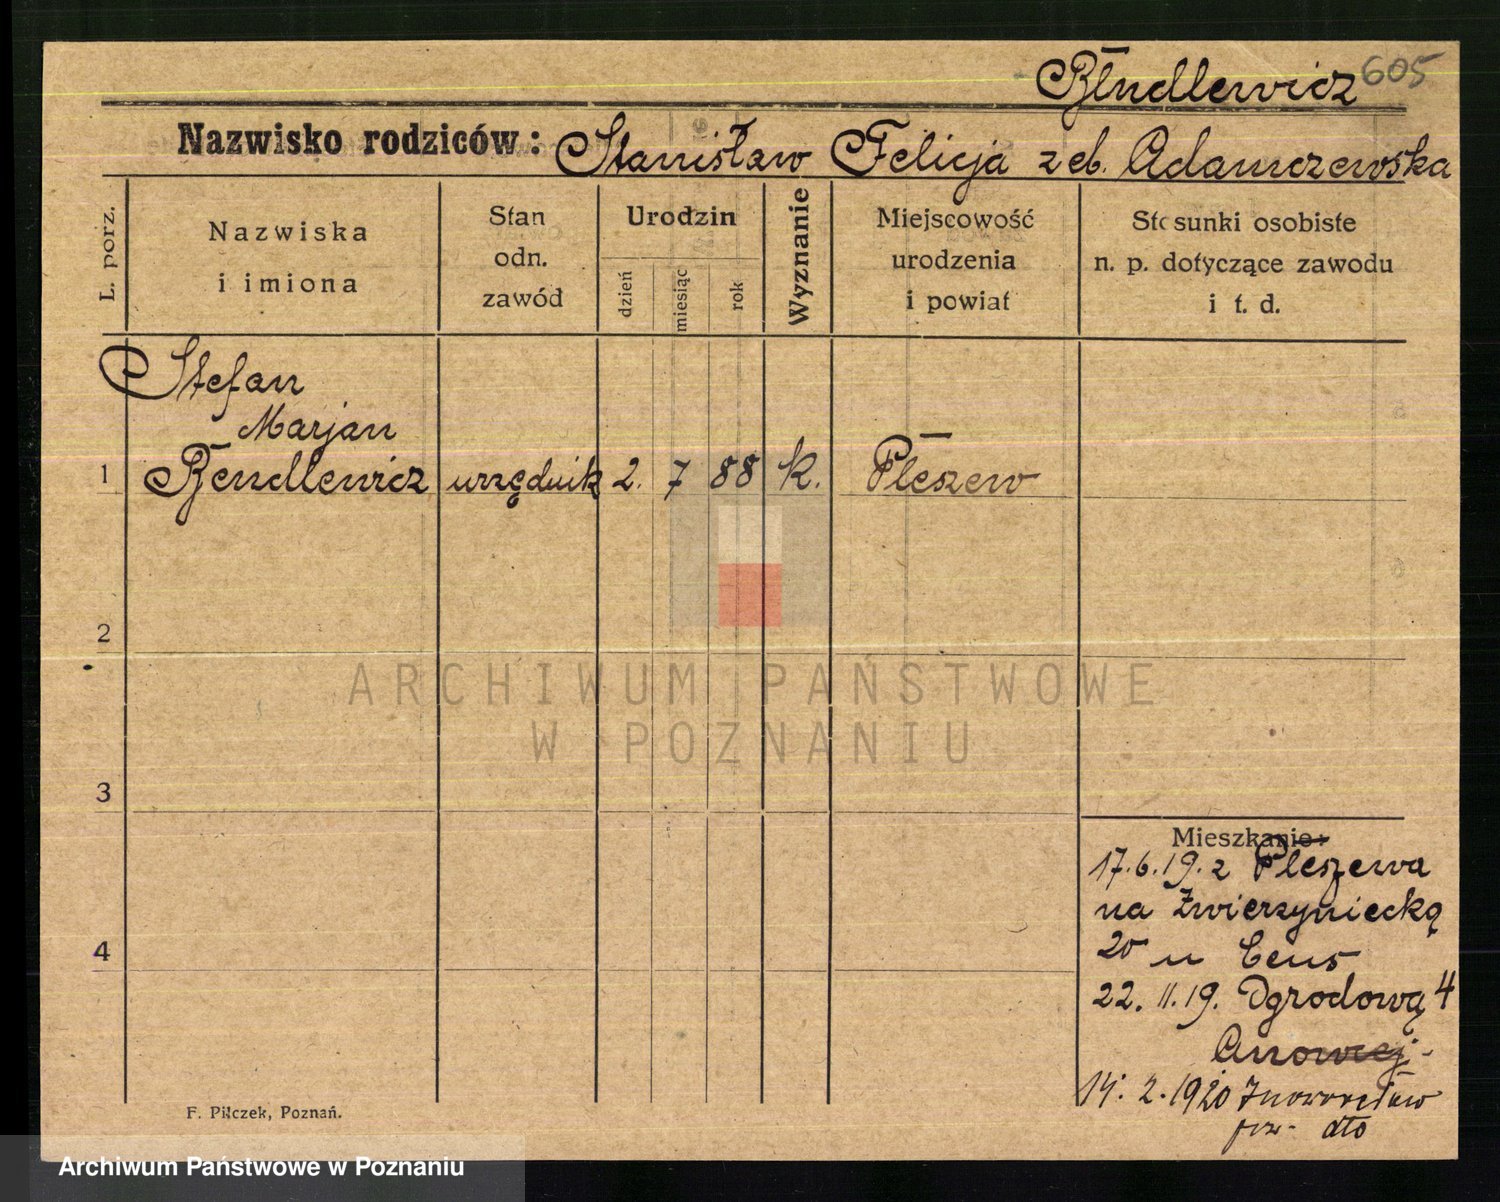 Bendlewicz 605
Nazwisko rodziców: Stanisław Felicja z Adamczewska
L. porz.
Nazwiska
i imiona
Stan
odn.
zawód
Urodzin
dzień
miesiąc
rok
Wyznanie
Miejscowość
urodzenia
i powiat
Stosunki osobiste
n. p. dotyczące zawodu
i t. d.
Stefan
Marjan
1 Bendlewicz urzędnik 2. 7 88 k. Pleszew
2
3
4
ARCHIWUM PAŃSTWOWE
W POZNANIU
Mieszkanie:
17.6.19. z Pleszewa
na Zwierzyniecką
20 u
22. 11. 19. Ogrodową 4
14. 2. 1920
F. Pilczek, Poznań.
Archiwum Państwowe w Poznaniu